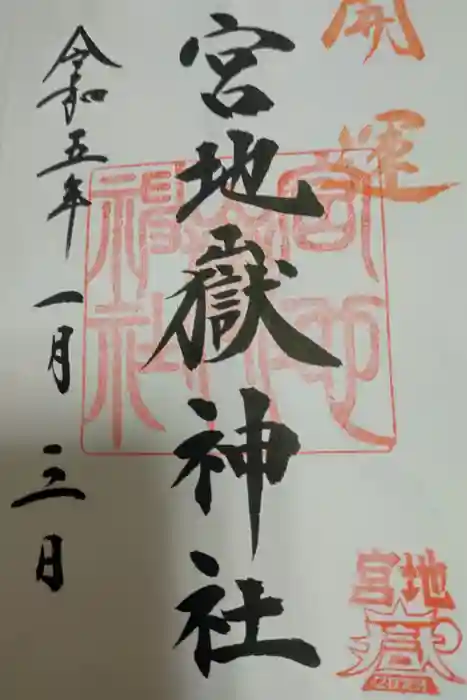 開運
宮地嶽神社
令和五年一月三日
宮地嶽神社
宮地
嶽
2023